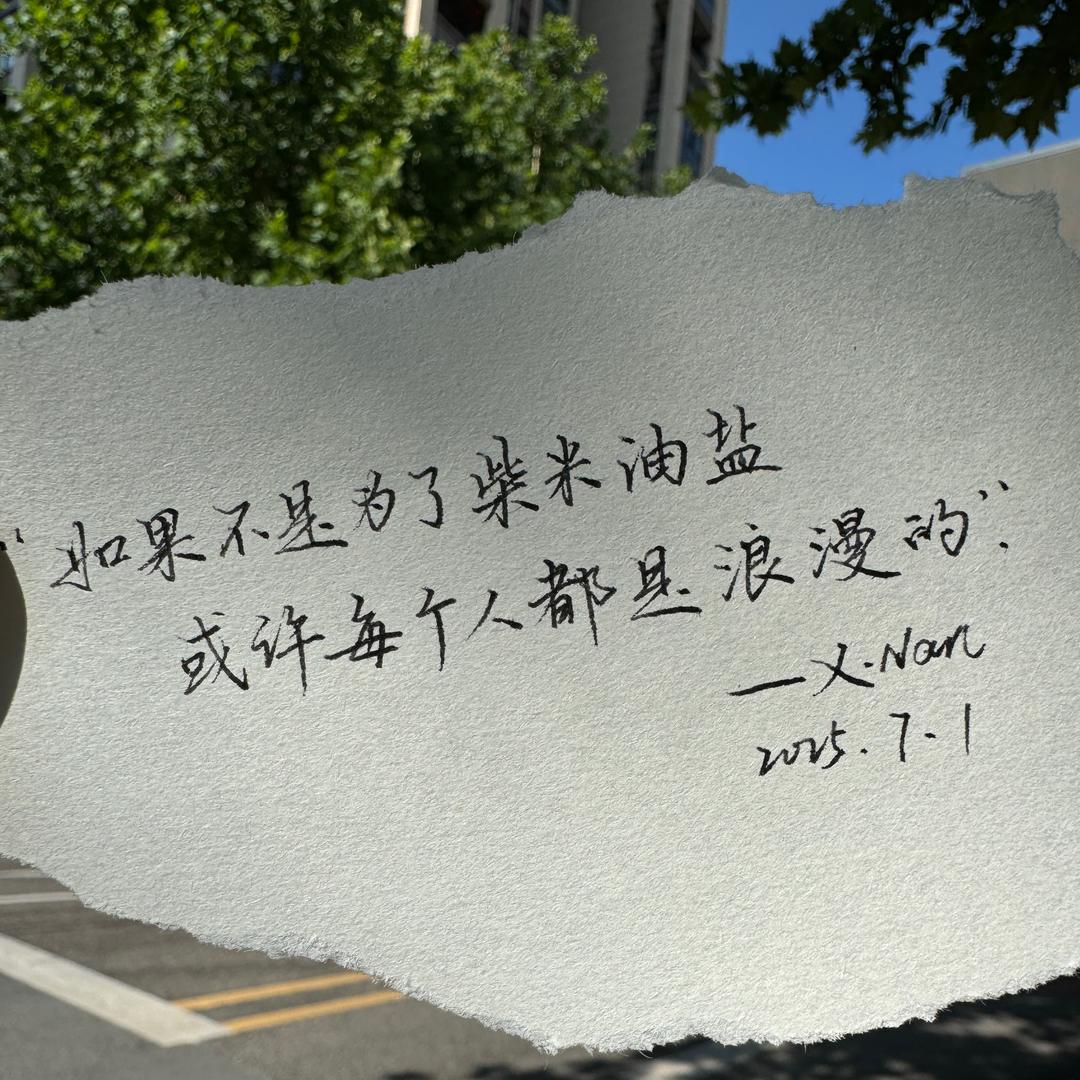 “如果不是为了柴米油盐
或许每个人都是浪漫的”.
—X·Nan
2025.7.1